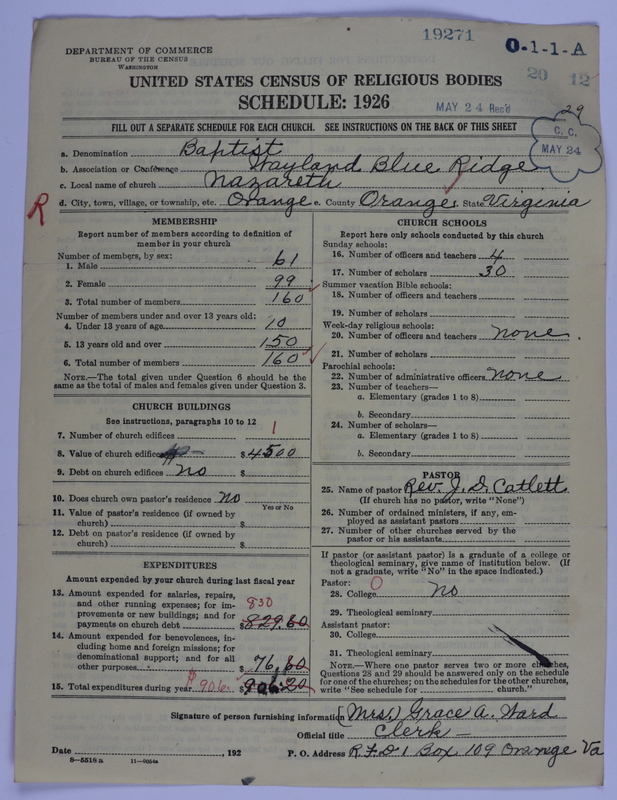 19271
O-1-1-A
DEPARTMENT OF COMMERCE
BUREAU OF THE CENSUS
WASHINGTON
29 12
UNITED STATES CENSUS OF RELIGIOUS BODIES
SCHEDULE: 1926
MAY 24 Rec'd
29
C. C.
MAY 24
FILL OUT A SEPARATE SCHEDULE FOR EACH CHURCH. SEE INSTRUCTIONS ON THE BACK OF THIS SHEET
a. Denomination Baptist
b. Association or Conference Wayland Blue Ridge
c. Local name of church Nazareth
R
d. City, town, village, or township, etc. Orange e. County Orange f. State Virginia
MEMBERSHIP
Report number of members according to definition of
member in your church
Number of members, by sex:
1. Male 61
2. Female 99
3. Total number of members 160
Number of members under and over 13 years old:
4. Under 13 years of age 10
5. 13 years old and over 150
6. Total number of members 160
NOTE.—The total given under Question 6 should be the
same as the total of males and females given under Question 3.
CHURCH BUILDINGS
See instructions, paragraphs 10 to 12
7. Number of church edifices 1
8. Value of church edifices $4500
9. Debt on church edifices No
10. Does church own pastor's residence No
Yes or No
11. Value of pastor's residence (if owned by
church) $
12. Debt on pastor's residence (if owned by
church) $
EXPENDITURES
Amount expended by your church during last fiscal year
13. Amount expended for salaries, repairs,
and other running expenses; for im-
provements or new buildings; and for
payments on church debt $829.60
830
14. Amount expended for benevolences, in-
cluding home and foreign missions; for
denominational support; and for all
other purposes $76,60
15. Total expenditures during year $906 $906.20
CHURCH SCHOOLS
Report here only schools conducted by this church
Sunday schools:
16. Number of officers and teachers 4
17. Number of scholars 30
Summer vacation Bible schools:
18. Number of officers and teachers
19. Number of scholars
Week-day religious schools:
20. Number of officers and teachers none.
21. Number of scholars
Parochial schools:
22. Number of administrative officers none
23. Number of teachers—
a. Elementary (grades 1 to 8)
b. Secondary
24. Number of scholars—
a. Elementary (grades 1 to 8)
b. Secondary
PASTOR
25. Name of pastor Rev. J. D. Catlett
(If church has no pastor, write "None")
26. Number of ordained ministers, if any, em-
ployed as assistant pastors
27. Number of other churches served by the
pastor or his assistants
If pastor (or assistant pastor) is a graduate of a college or
theological seminary, give name of institution below. (If
not a graduate, write "No" in the space indicated.)
Pastor:
28. College 0 No
29. Theological seminary
Assistant pastor:
30. College
31. Theological seminary
NOTE.—Where one pastor serves two or more churches,
Questions 28 and 29 should be answered only on the schedule
for one of the churches; on the schedules for the other churches,
write "See schedule for church."
Signature of person furnishing information (Mrs.) Grace A. Ward
Official title Clerk —
Date , 192 P. O. Address R.F.D 1 Box 109 Orange Va
8—5518 a 11—9054a